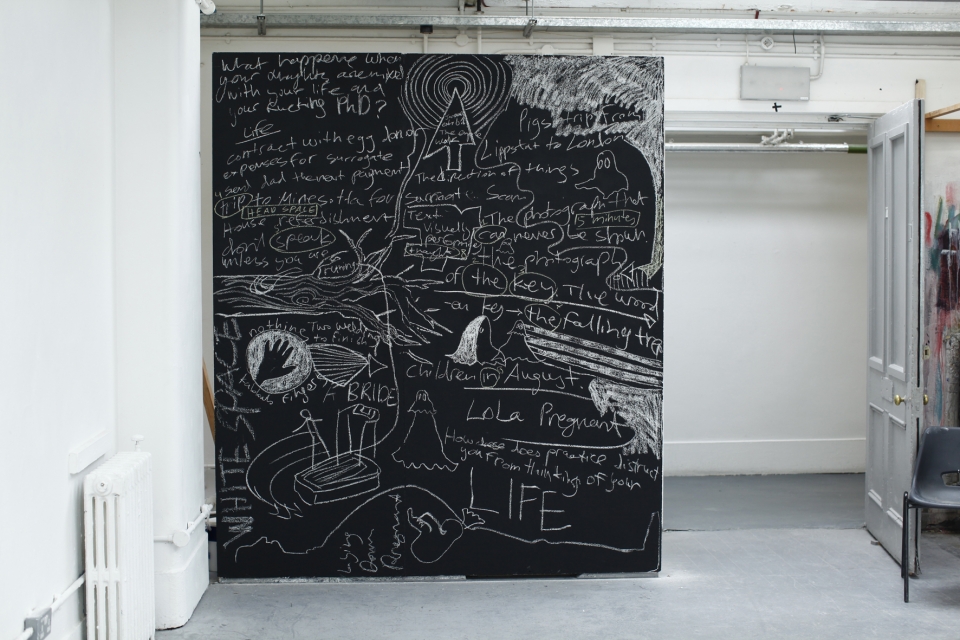 What happens when
your thoughts are mixed
with your life and
your Ructing PhD?
Life
contract with egg donor
expenses for surrogate
dad the next payment
trip to Minesotta for
HEAD SPACE
House refurbishment
speak
unless you are
running
Pigs trip from
Lippstat to London
The direction of things
surrogate Scan
Text
visually
perform
The photograph that
5 minutes
can never be shown
the photograph
of the key. The wood
on key → the falling tree
nothing Two weeks
to finish
A BRIDE
WHITE SPACE
children in August.
LoLa Pregnant
How does does practice distract
you from thinkings of your
LIFE
Lying
Down
Pregnant